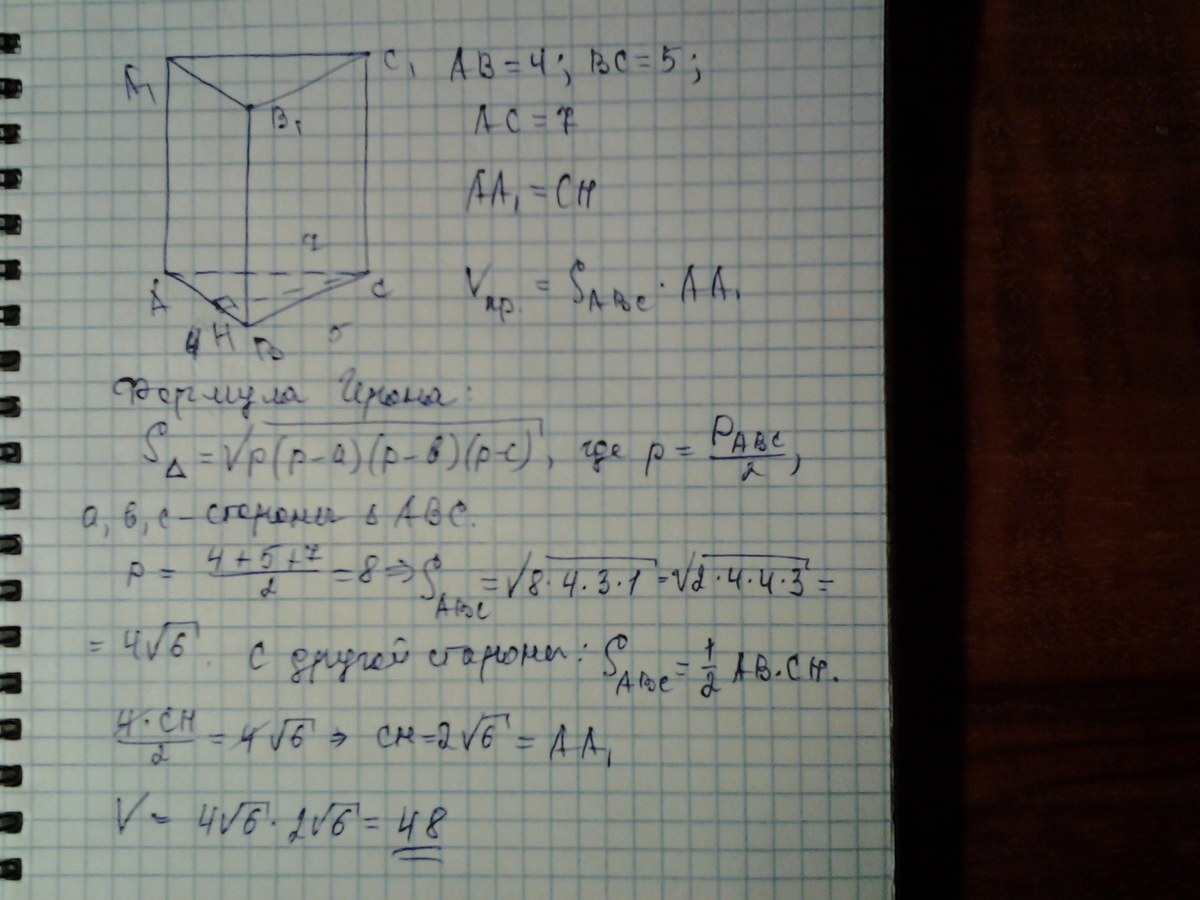 A₁ C₁ AB = 4; BC = 5;
B₁ AC = 7
AA₁ = CH
7
A C
Vпр. = S_ABC · AA₁
4 H B 5
Формула Герона:
S_Δ = √p(p-a)(p-в)(p-c), где p = P_ABC/2,
a, в, c - стороны Δ ABC.
p = (4+5+7)/2 = 8 ⇒ S_ABC = √8·4·3·1 = √2·4·4·3 =
= 4√6. С другой стороны: S_ABC = 1/2 AB·CH.
4·CH/2 = 4√6 ⇒ CH = 2√6 = AA₁
V = 4√6 · 2√6 = 48